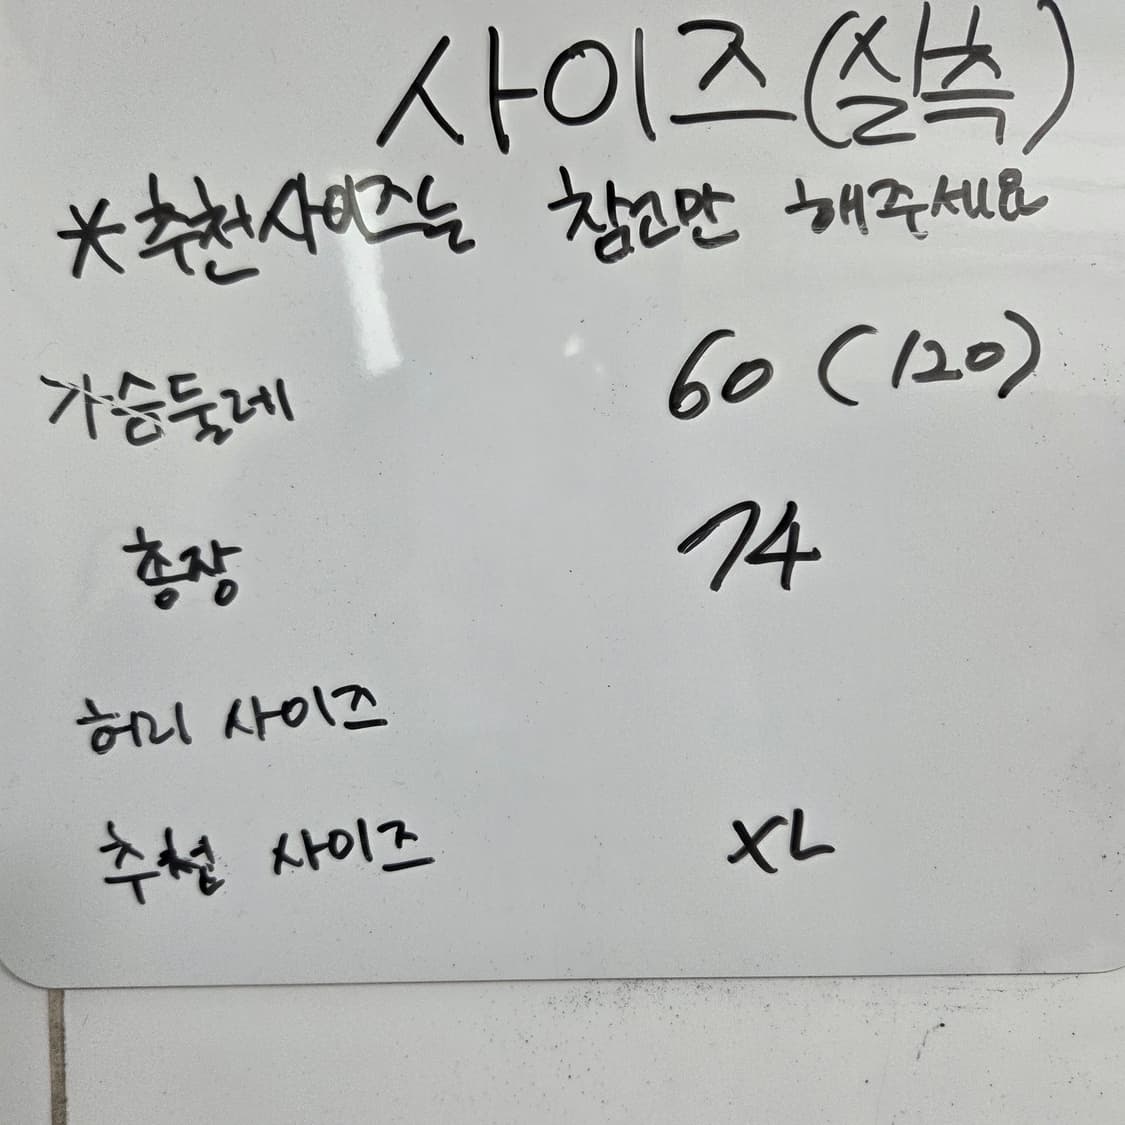 사이즈(실측)
*추천사이즈는 참고만 해주세요
가슴둘레 60 (120)
총장 74
허리 사이즈
추천 사이즈 XL